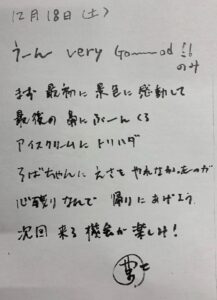 12月18日(土)
うーん very Good!!
のみ
まず最初に景色に感動して
最後の鼻にふーんくる
アイスクリームにトリハダ
そばちゃんにえさをやれなかったのが
心残りなんで 帰りにあげよう。
次回来る機会が楽しみ!